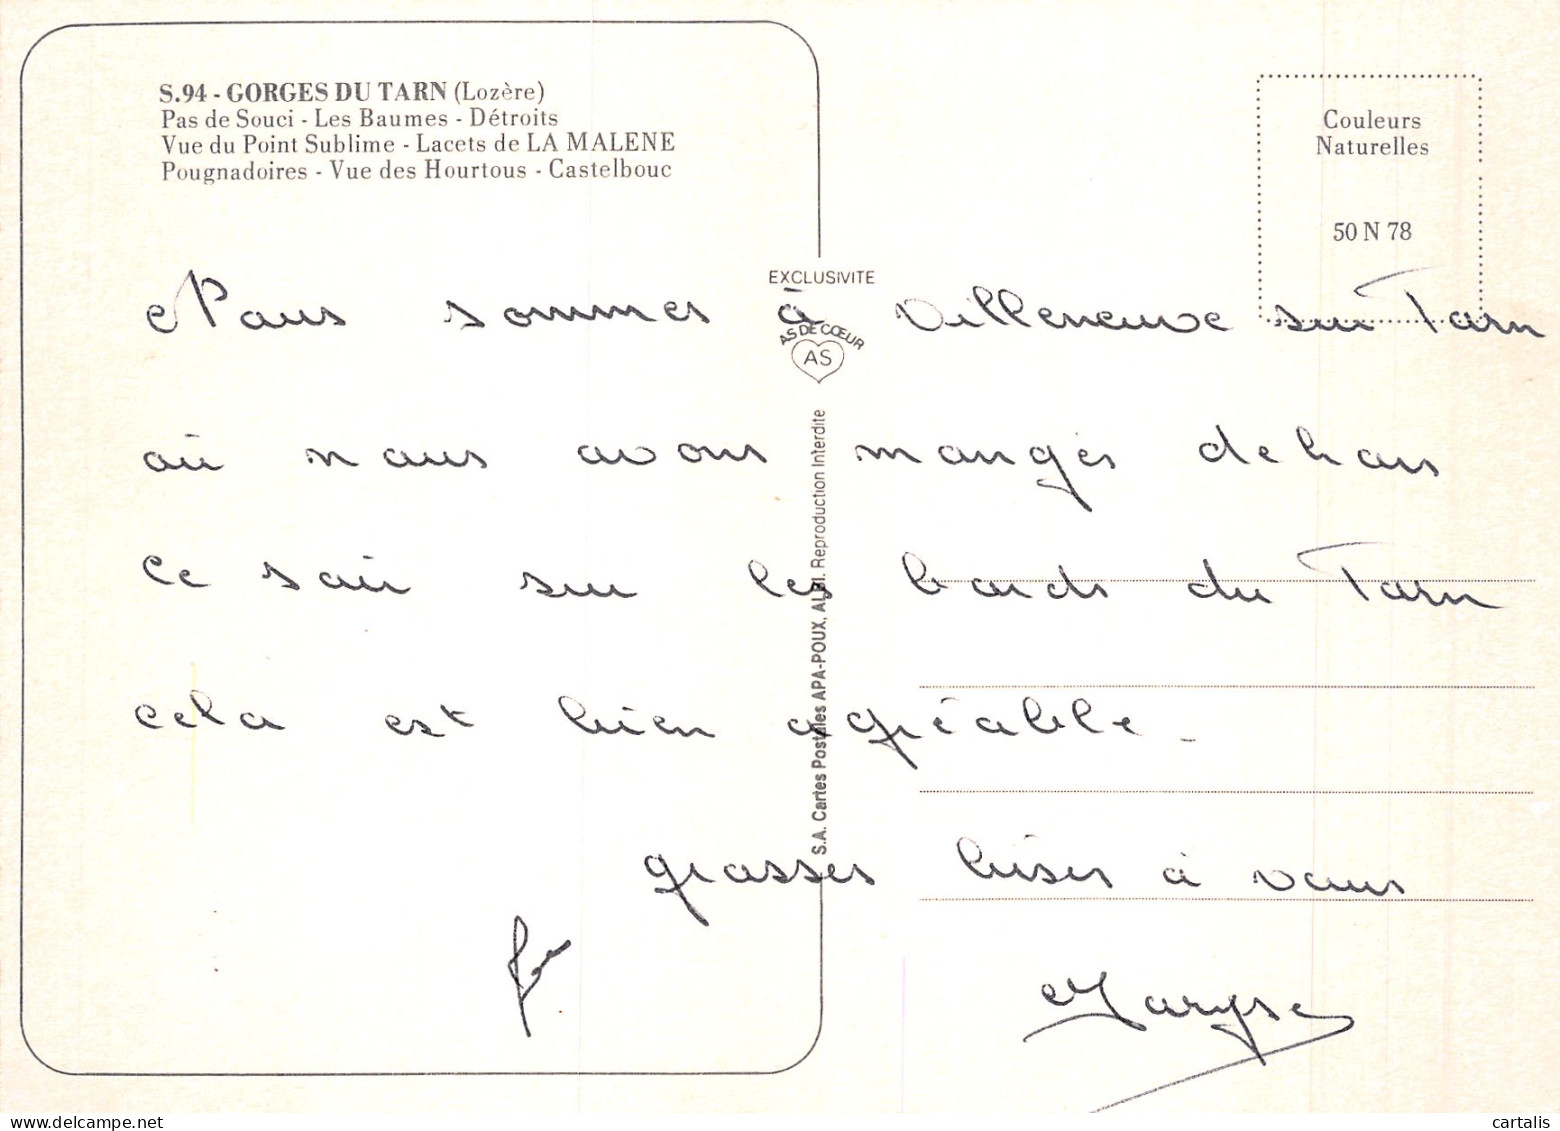 S.94 - GORGES DU TARN (Lozère)
Pas de Souci - Les Baumes - Détroits
Vue du Point Sublime - Lacets de LA MALENE
Pougnadoires - Vue des Hourtous - Castelbouc
Couleurs
Naturelles
50 N 78
EXCLUSIVITE
AS DE CŒUR
AS
S.A. Cartes Postales APA-POUX, ALBI. Reproduction Interdite
Nous sommes à Villeneuve sur Tarn
où nous avons mangés dehors
ce soir sur les bords du Tarn
cela est bien agréable.
grosses bises à vous
Maryse
www.delcampe.net
cartalis